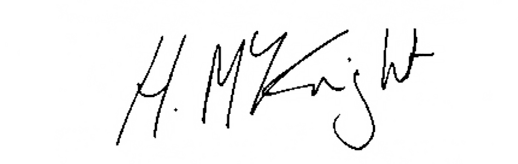 H. McKnight